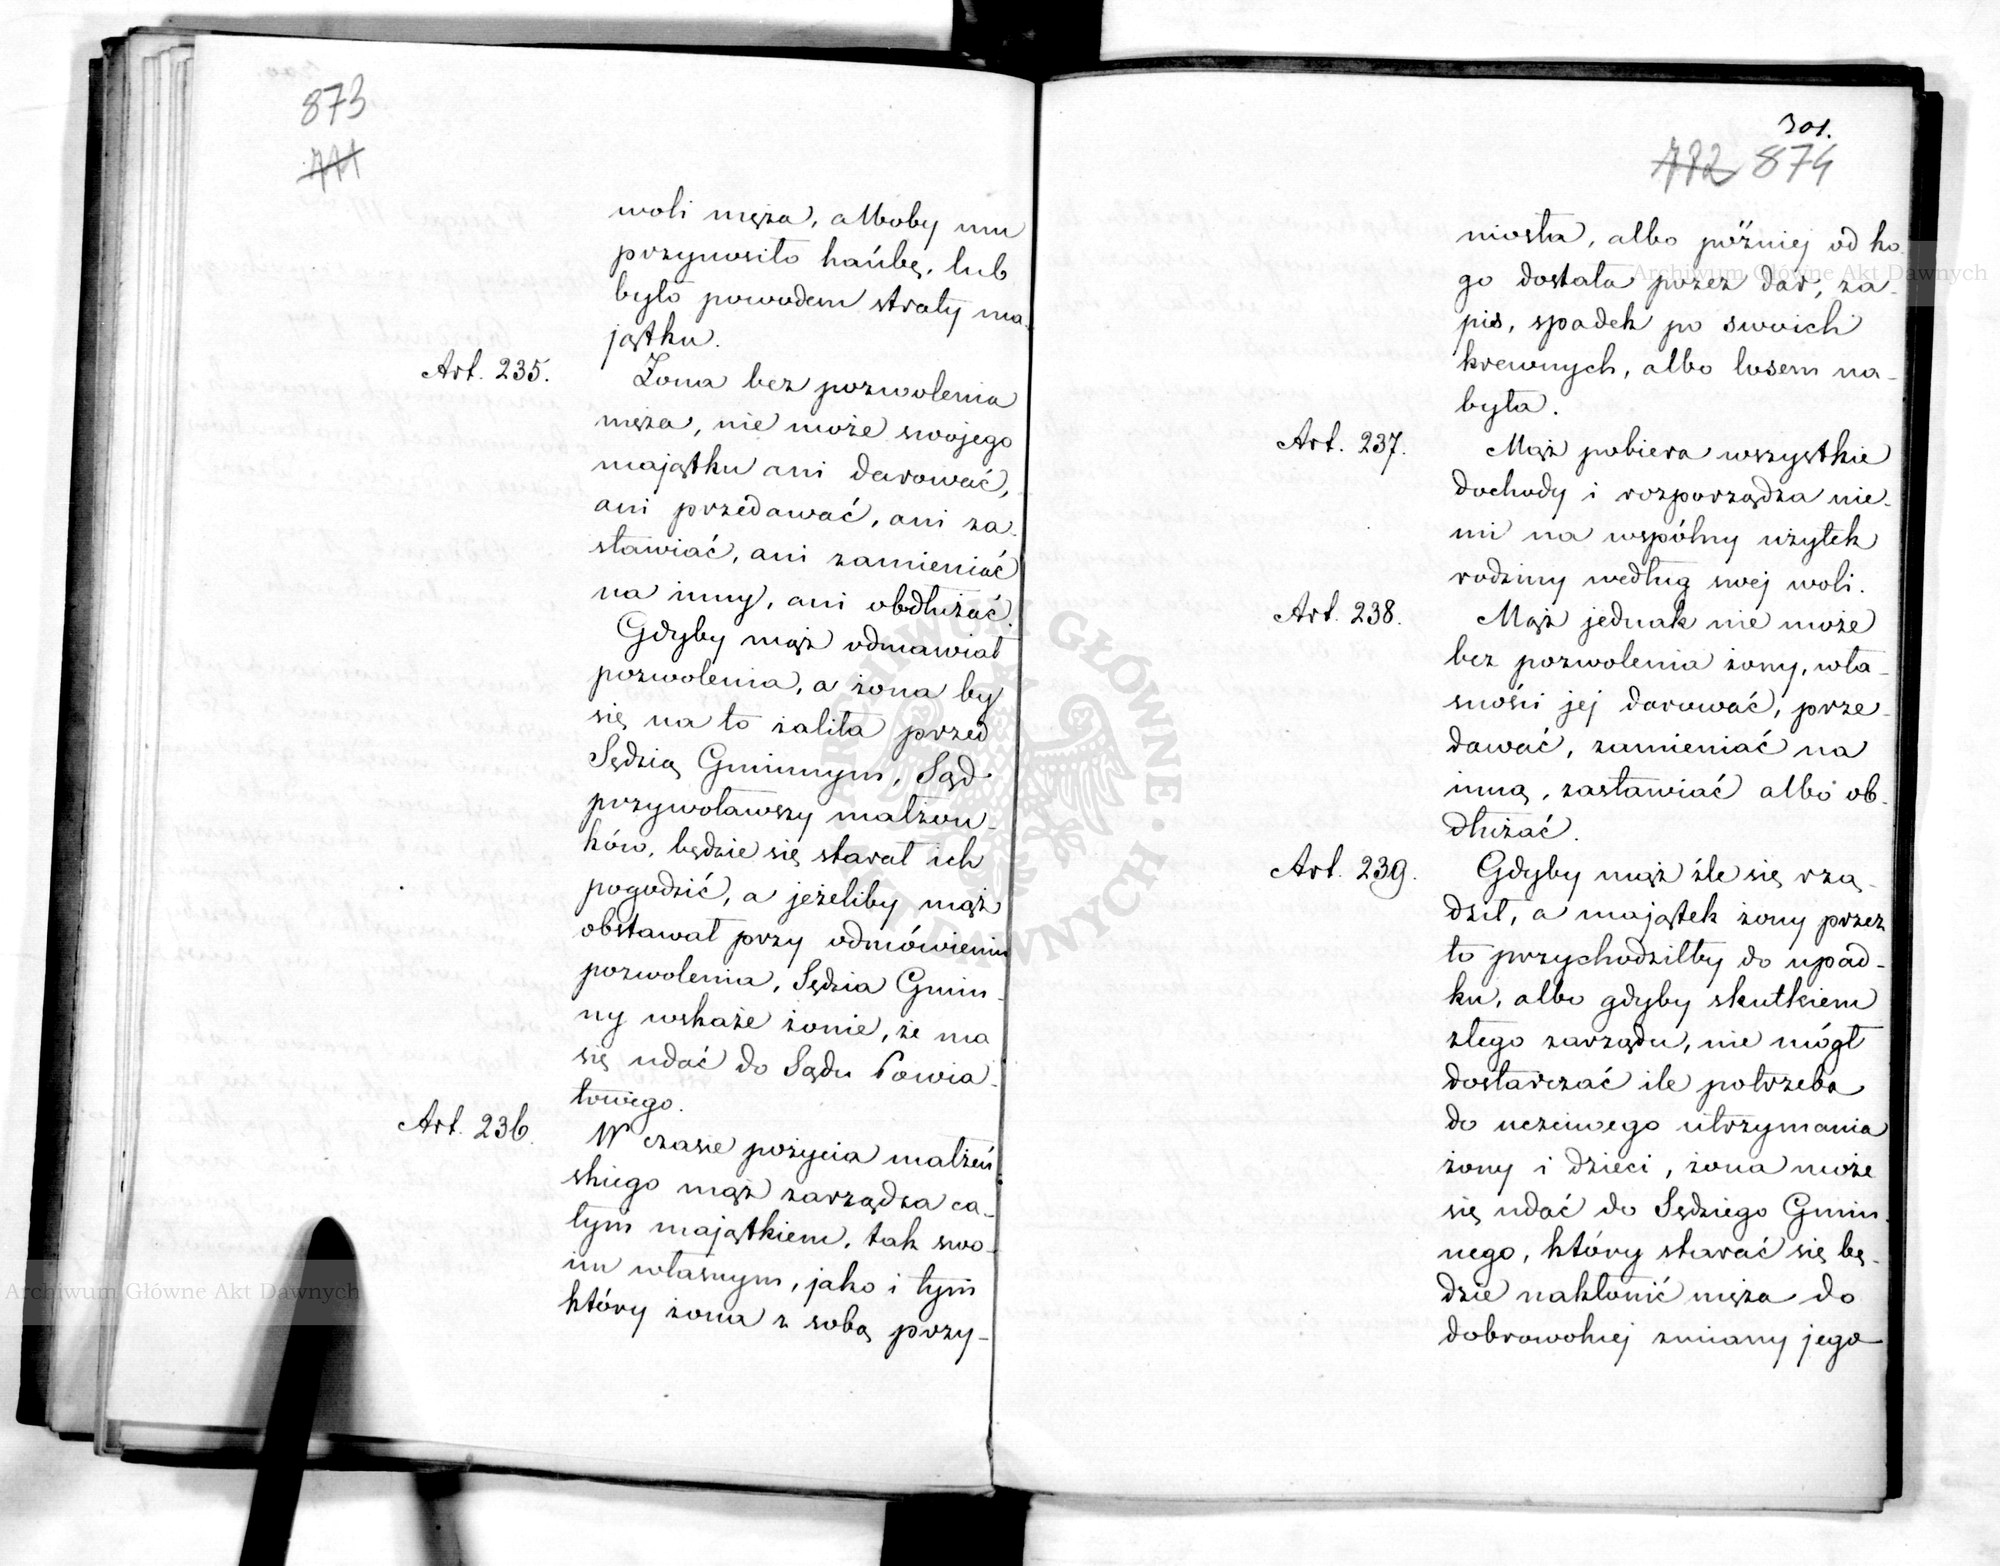 873
woli męża, alboby mu
przynosiło hańbę, lub
było powodem straty ma-
jątku.
Art. 235.
Żona bez pozwolenia
męża, nie może swojego
majątku ani darować,
ani przedawać, ani za-
stawiać, ani zamieniać
na inny, ani obdłużać.
Gdyby mąż odmawiał
pozwolenia, a żona by
się na to żaliła przed
Sędzią Gminnym, Sąd
przywoławszy małżon-
ków, będzie się starał ich
pogodzić, a jeżeliby mąż
obstawał przy odmówieniu
pozwolenia, Sędzia Gmin-
ny wskaże żonie, że ma
się udać do Sądu Powia-
towego.
Art. 236.
W czasie pożycia małżeń
skiego mąż zarządza ca-
łym majątkiem, tak swo-
im własnym, jako i tym
który żona z sobą przy-
301.
712 874
niosła, albo później od ko
go dostała przez dar, za-
pis, spadek po swoich
krewnych, albo losem na-
była.
Art. 237.
Mąż pobiera wszystkie
dochody i rozporządza nie-
mi na wspólny użytek
rodziny według swej woli.
Art. 238.
Mąż jednak nie może
bez pozwolenia żony, wła-
sności jej darować, prze-
dawać, zamieniać na
inną, zastawiać albo ob-
dłużać.
Art. 239.
Gdyby mąż źle się rzą-
dził, a majątek żony przez
to przychodziłby do upad-
ku, albo gdyby skutkiem
złego zarządu, nie mógł
dostarczać ile potrzeba
do uczciwego utrzymania
żony i dzieci, żona może
się udać do Sędziego Gmin-
nego, który starać się bę-
dzie nakłonić męża do
dobrowolnej zmiany jego
Archiwum Główne Akt Dawnych
Archiwum Główne Akt Dawnych
ARCHIWUM GŁÓWNE AKT DAWNYCH